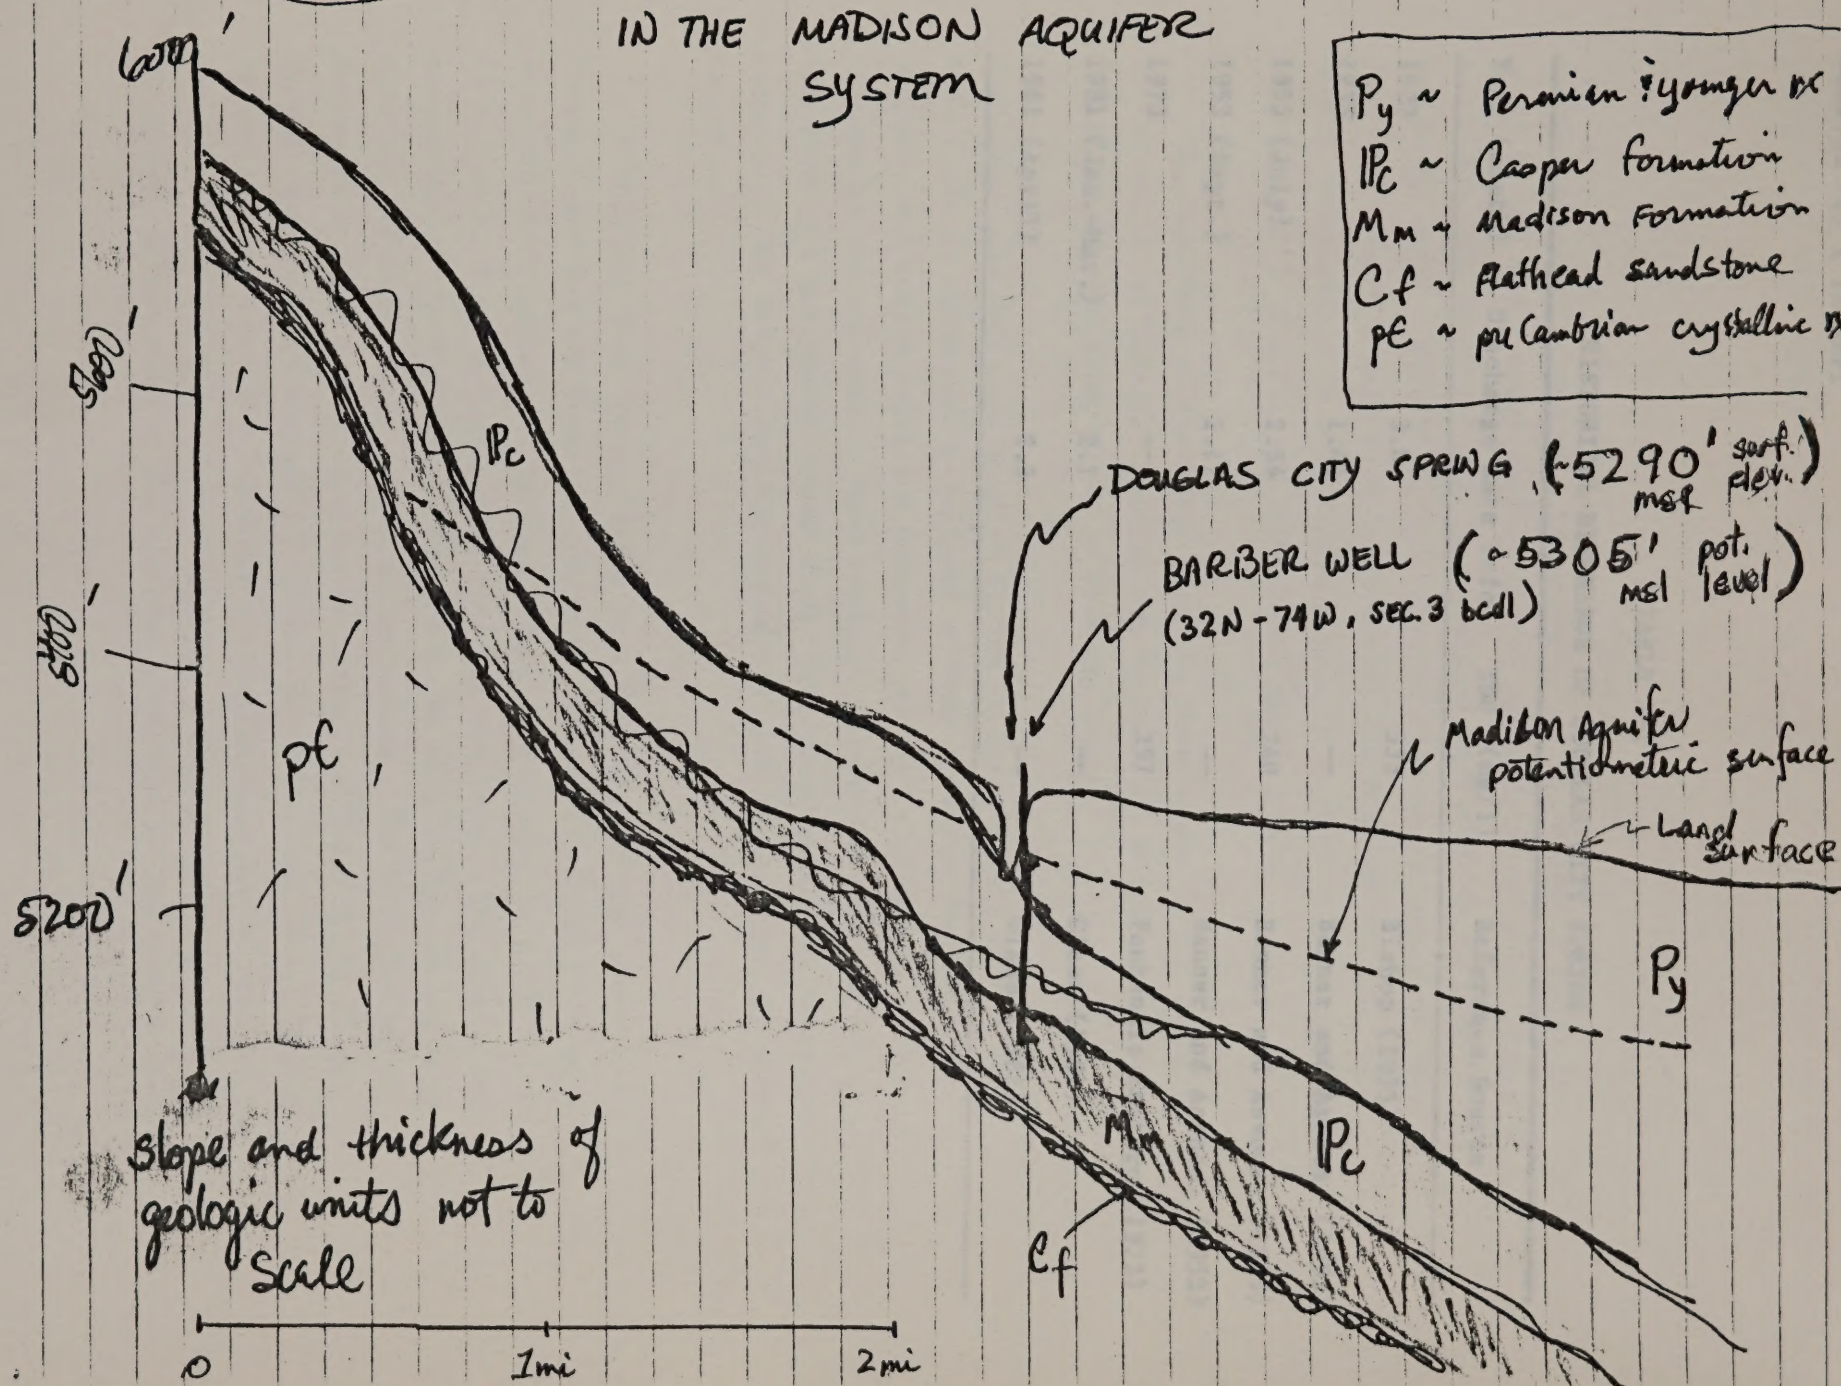 IN THE MADISON AQUIFER
SYSTEM
6000'
Py ~ Permian & younger rx
IPc ~ Casper Formation
Mm ~ Madison Formation
Cf ~ Flathead sandstone
p€ ~ preCambrian crystalline rx
5600'
IPc
DOUGLAS CITY SPRING (~5290' surf. elev.)
msl
BARBER WELL (~5305' pot. level)
msl
(32N-74W, SEC. 3 bcd1)
5400'
p€
Madison Aquifer
potentiometric surface
Land
surface
5200'
Py
Mm
IPc
Cf
Slope and thickness of
geologic units not to
Scale
0 1mi 2mi